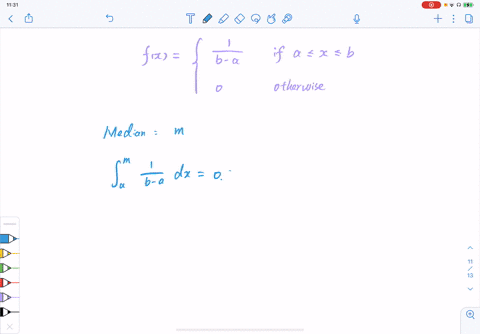 11:31
f(x) = { 1/(b-a) if a ≤ x ≤ b
0 otherwise
Median = m
∫_a^m 1/(b-a) dx = 0.
11 / 13